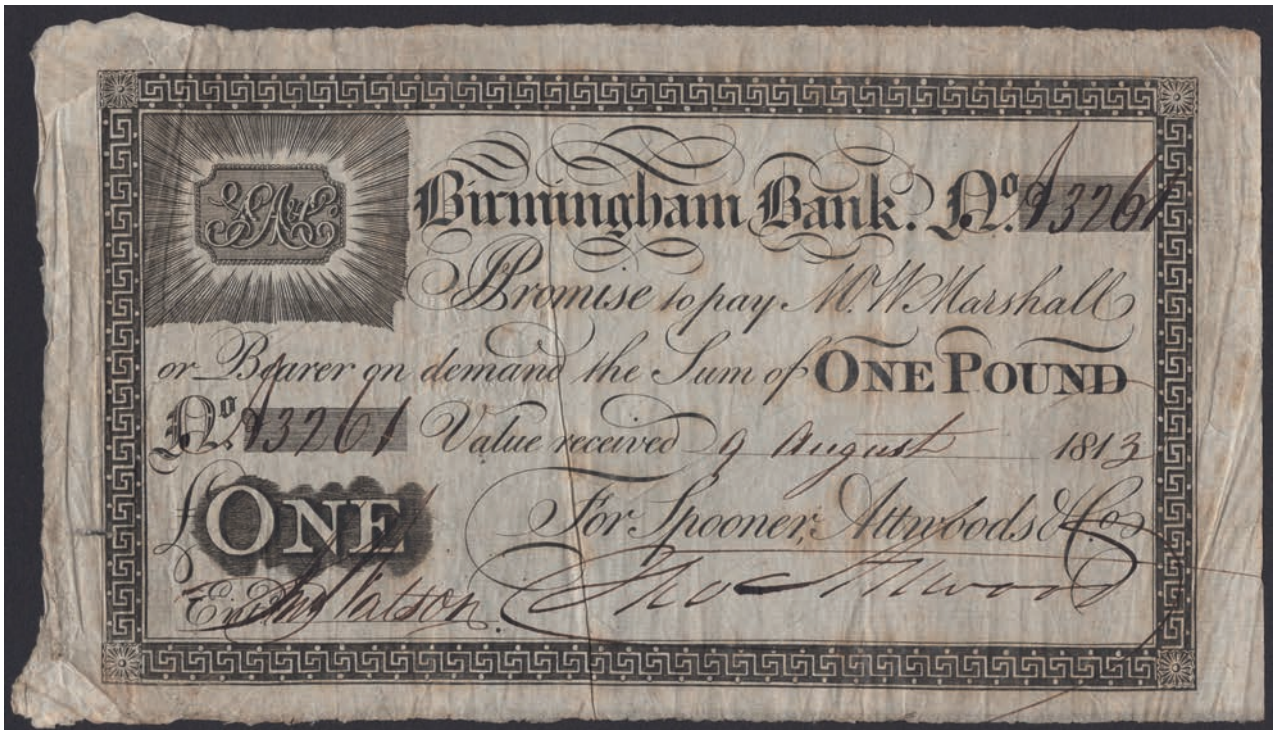 Birmingham Bank. No. A3761
I Promise to pay Mr. W. Marshall
or Bearer on demand the Sum of ONE POUND
No. A3761 Value received 9 August 1813
£ONE For Spooner, Attwoods & Co.
Entd. Watson Tho Attwood